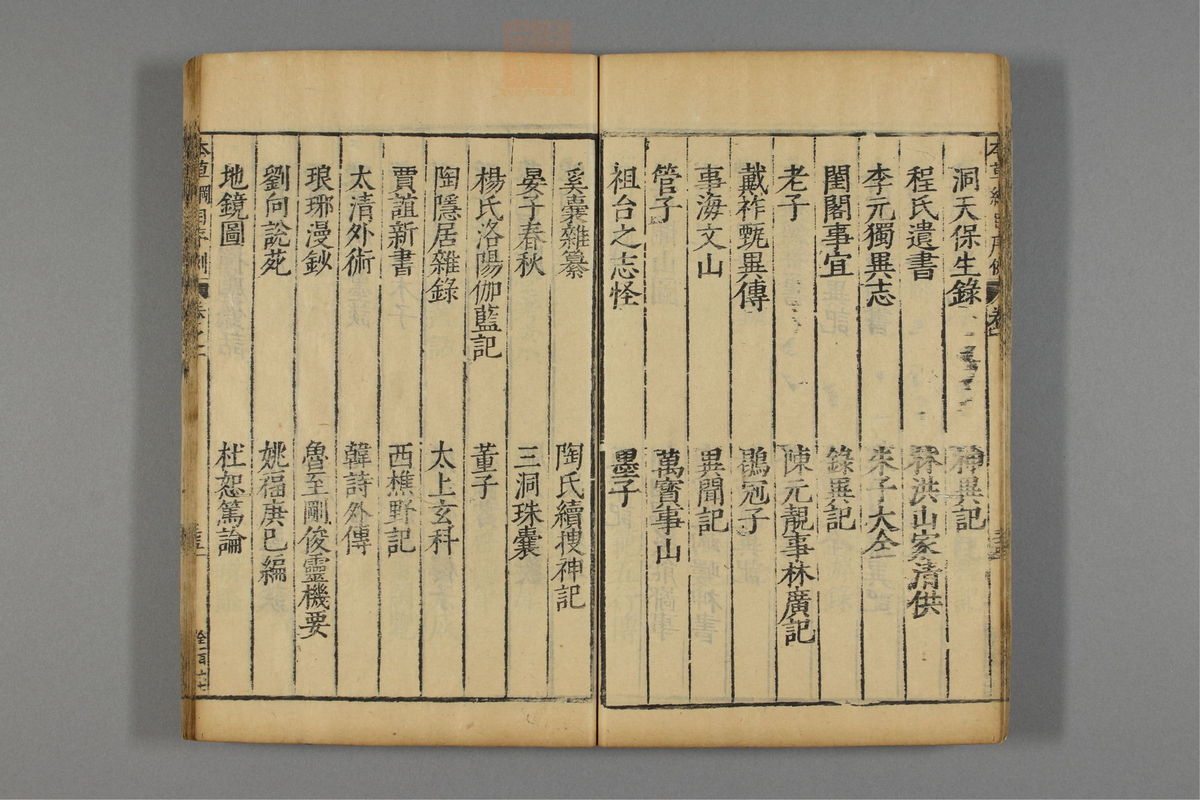 洞天保生錄
神異記
程氏遺書
林洪山家清供
李元獨異志
朱子大全
閨閣事宜
錄異記
老子
陳元靚事林廣記
戴祚甄異傳
鶡冠子
事海文山
異聞記
管子
萬寶事山
祖台之志怪
墨子
奚囊雜纂
陶氏續搜神記
晏子春秋
三洞珠囊
楊氏洛陽伽藍記
董子
陶隱居雜錄
太上玄科
賈誼新書
西樵野記
太清外術
韓詩外傳
琅琊漫鈔
魯至剛俊靈機要
劉向說苑
姚福庚已編
地鏡圖
杜恕篤論
本草綱目序例